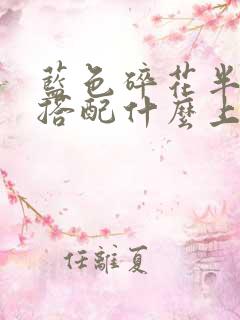 藍色碎花半
搭配什麼上
任離夏